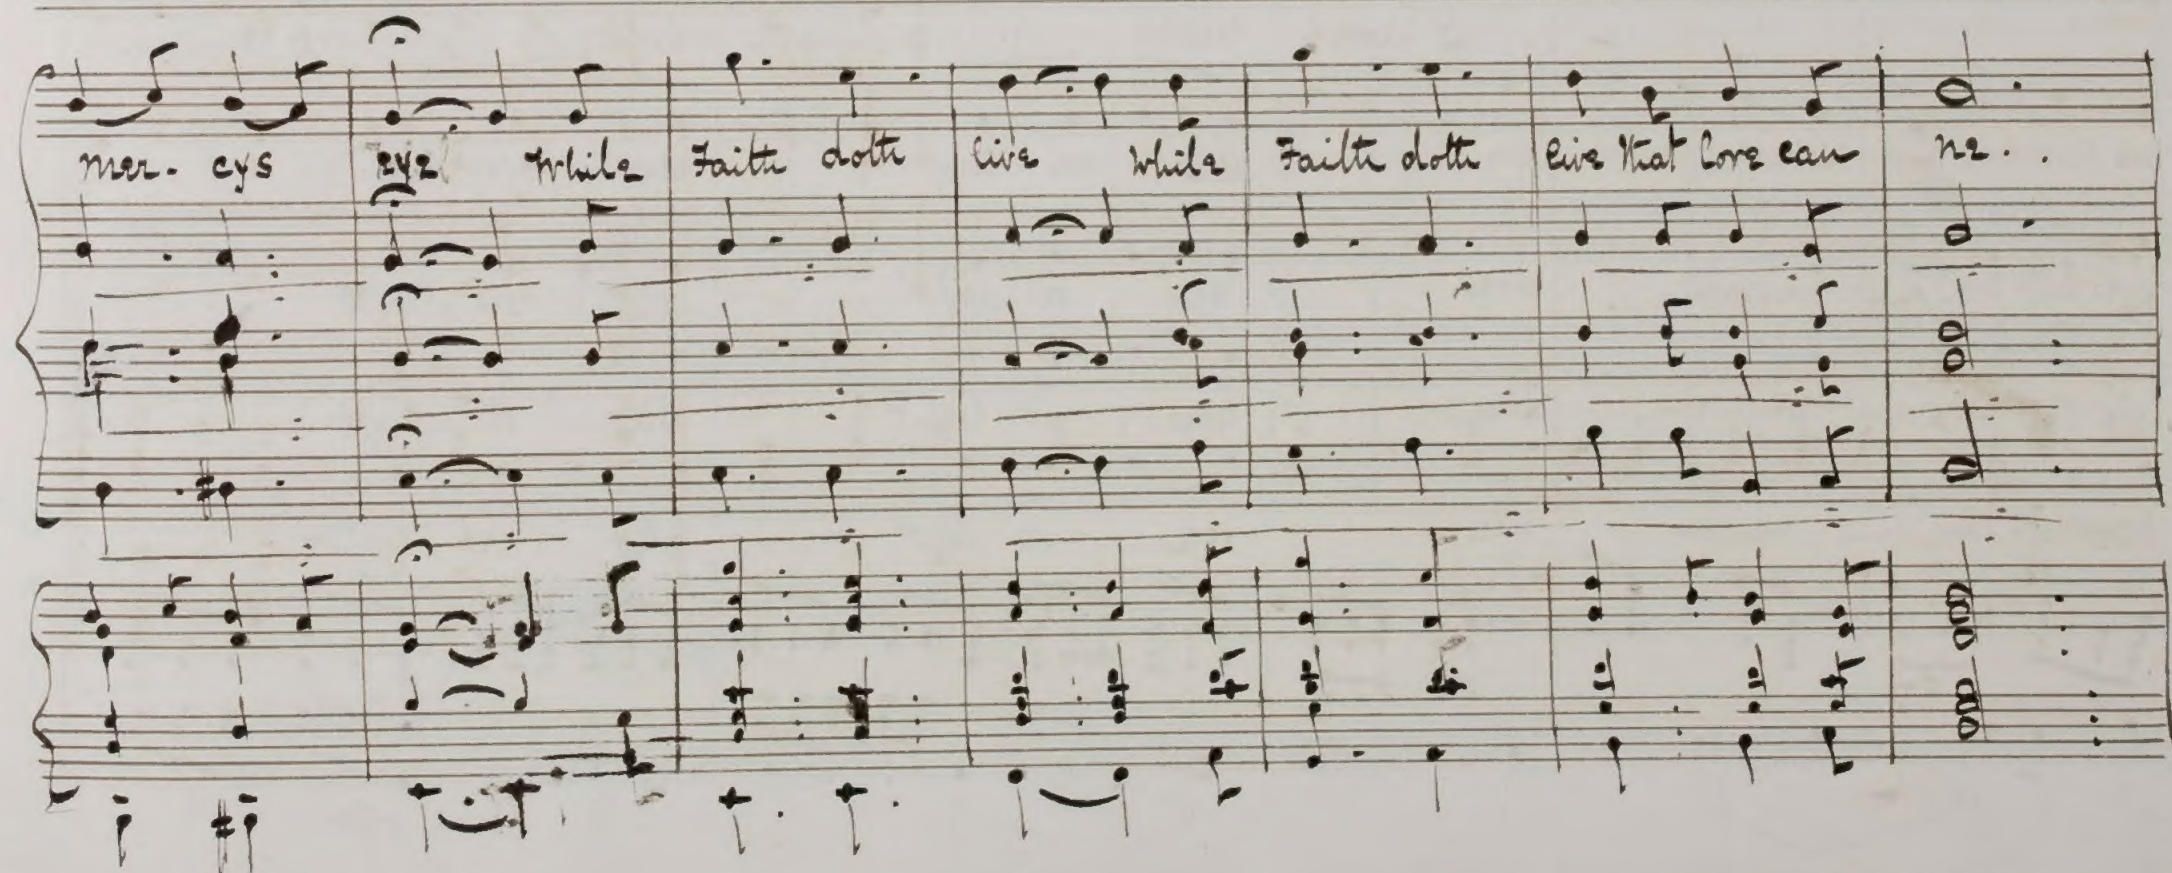 mer- cys eye While Faith doth live While Faith doth live that love can ne..